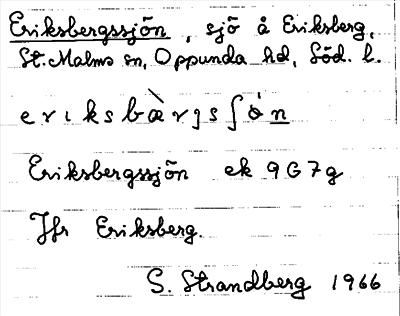 Eriksbergssjön, sjö å Eriksberg,
St. Malms sn, Oppunda hd, Söd. l.
e r ı k s b æ̀ r ȷ s ʃ ǿ n
Eriksbergssjön ek 9G7g
Jfr Eriksberg.
S. Strandberg 1966